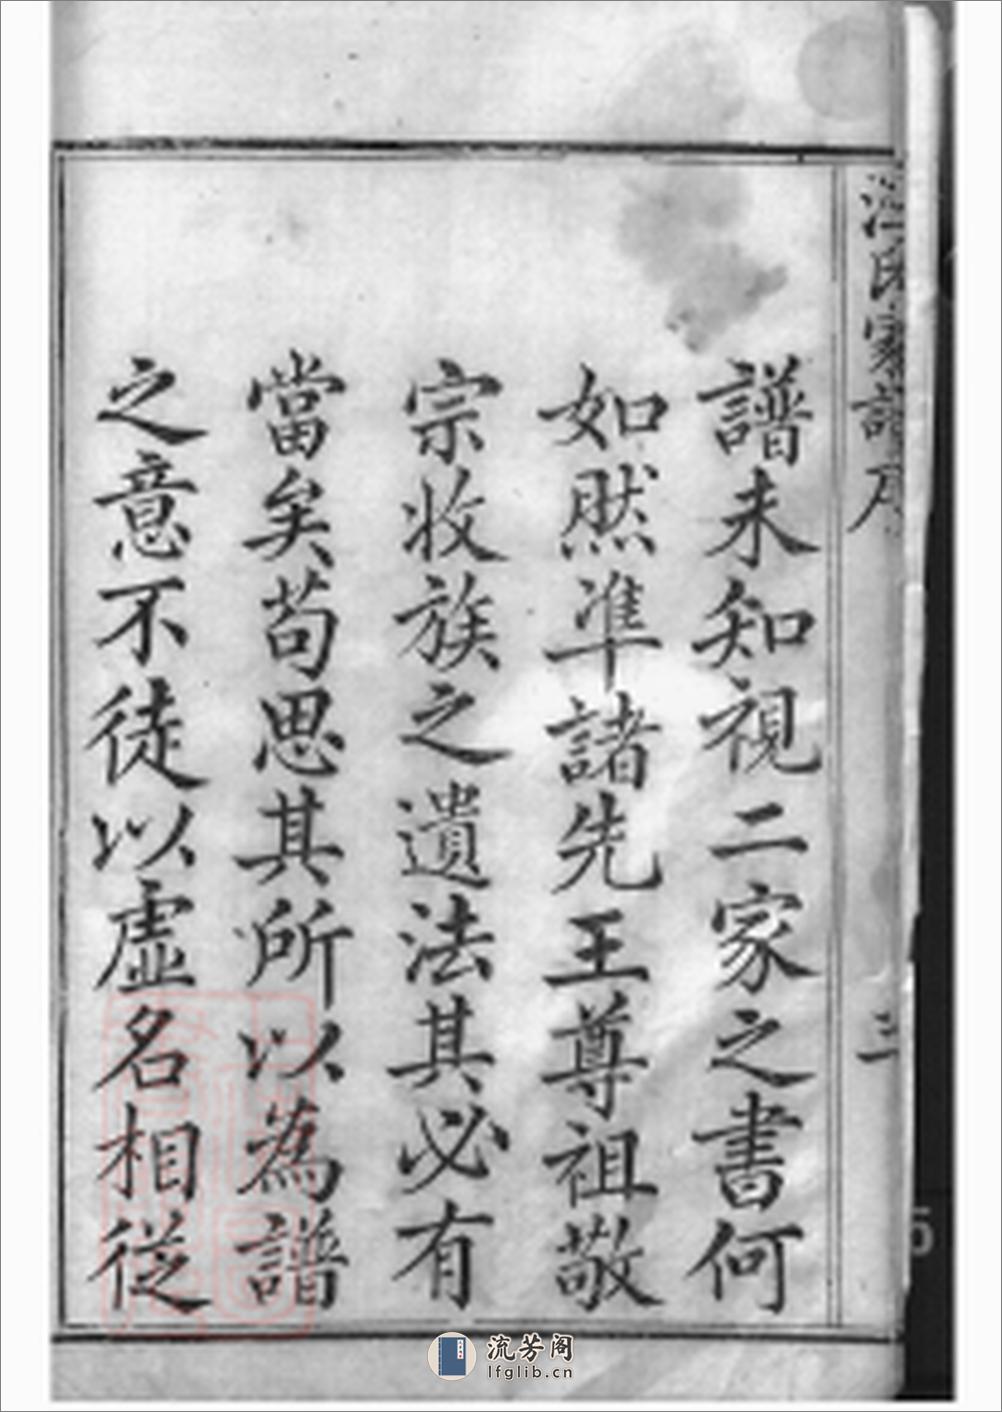 氏家譜序
三
譜未知視二家之書何
如然準諸先王尊祖敬
宗收族之遺法其必有
當矣苟思其所以為譜
之意不徒以虛名相從
流芳阁
lfglib.cn